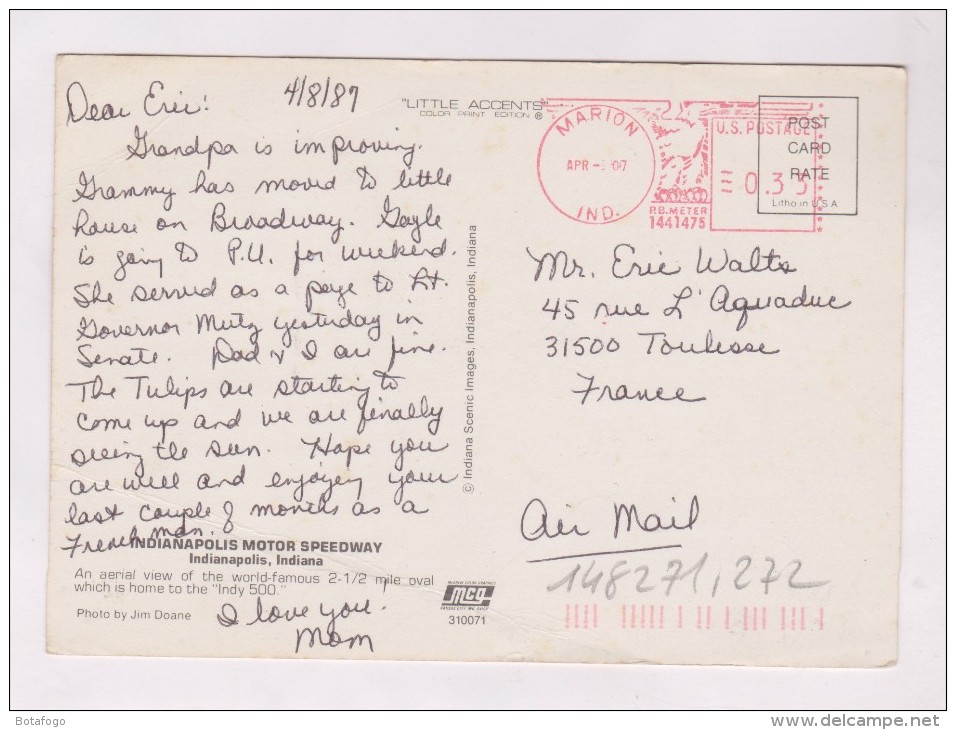 Dear Eric: 4/8/87
Grandpa is improving.
Grammy has moved to little
house on Broadway. Gayle
is going to P.U. for weekend.
She served as a page to Lt.
Governor Mutz yesterday in
Senate. Dad & I are fine.
The Tulips are starting to
come up and we are finally
seeing the sun. Hope you
are well and enjoying your
last couple of months as a
French man.
I love you.
Mom
INDIANAPOLIS MOTOR SPEEDWAY
Indianapolis, Indiana
An aerial view of the world-famous 2-1/2 mile oval
which is home to the "Indy 500."
Photo by Jim Doane
"LITTLE ACCENTS"
COLOR PRINT EDITION ®
© Indiana Scenic Images, Indianapolis, Indiana
MCG
310071
MARION
APR
IND.
22
P.B. METER
1441475
U.S. POSTAGE
0.33
POST
CARD
RATE
Litho in U S A
Mr. Eric Walts
45 rue L'Aquaduc
31500 Toulesse
France
Air Mail
148271,272
Botafogo
www.delcampe.net